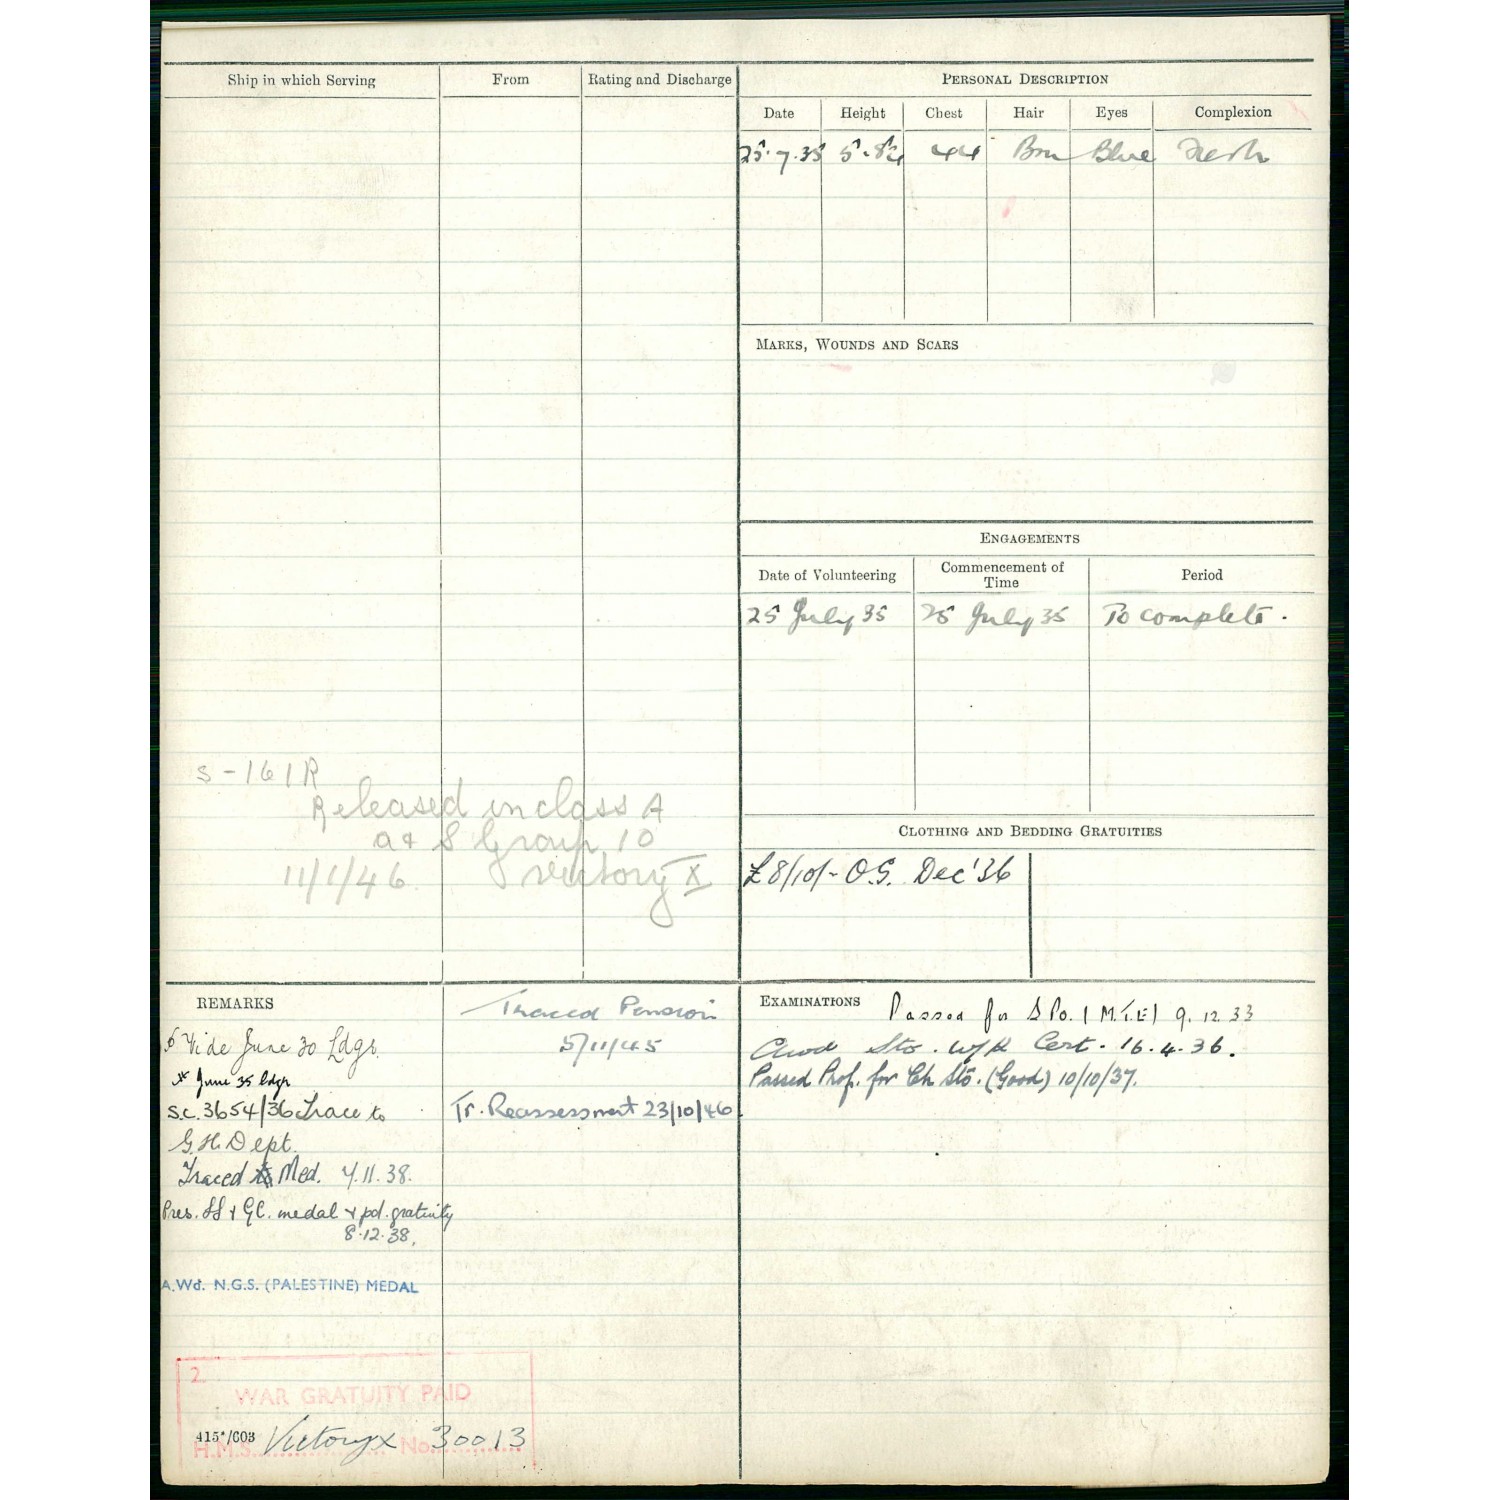 Ship in which Serving
From
Rating and Discharge
S-161R
Released in class A
a & S Group 10
11/1/46 Victory X
PERSONAL DESCRIPTION
Date Height Chest Hair Eyes Complexion
25.7.35 5.8¼ 44 Brn Blue Fresh
MARKS, WOUNDS AND SCARS
ENGAGEMENTS
Date of Volunteering Commencement of Time Period
25 July 35 25 July 35 To complete.
CLOTHING AND BEDDING GRATUITIES
£8/10/- O.S. Dec '36
REMARKS
Vide June 30 Ldgr.
June 35 ldgr
S.C. 3654/36 Trace to
G.H. Dept.
Traced Med. 7.11.38.
Pres. LS & GC. medal & pd. gratuity
8.12.38.
A.Wd. N.G.S. (PALESTINE) MEDAL
2.
WAR GRATUITY PAID
415*/603
H.M.S. Victory X No. 30013
Traced Pension
5/11/45
Tr. Reassessment 23/10/46
EXAMINATIONS Passed for S Po. (M.T.E) 9.12.33
Awd Sto. W/K Cert. 16.4.36.
Passed Prof. for Ch Sto. (Good) 10/10/37.